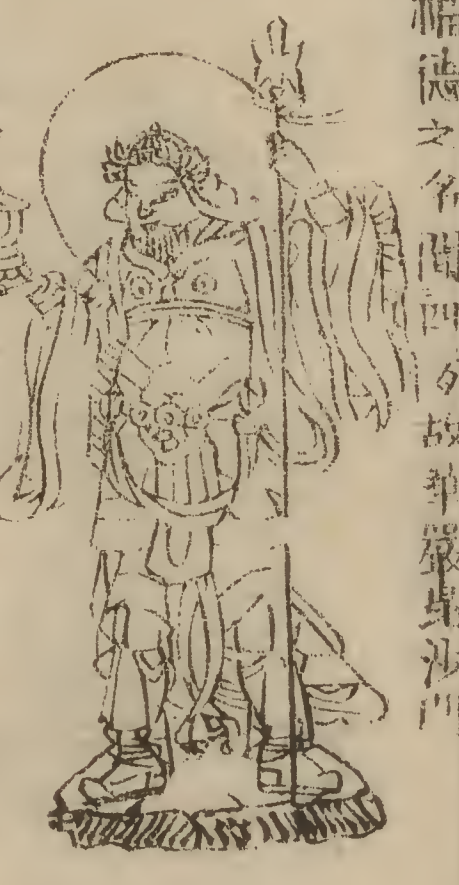 福德之名聞四方故華嚴毘沙門